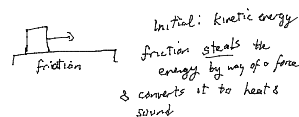 Initial: Kinetic energy
friction steals the
energy by way of a force
& converts it to heat &
sound
friction